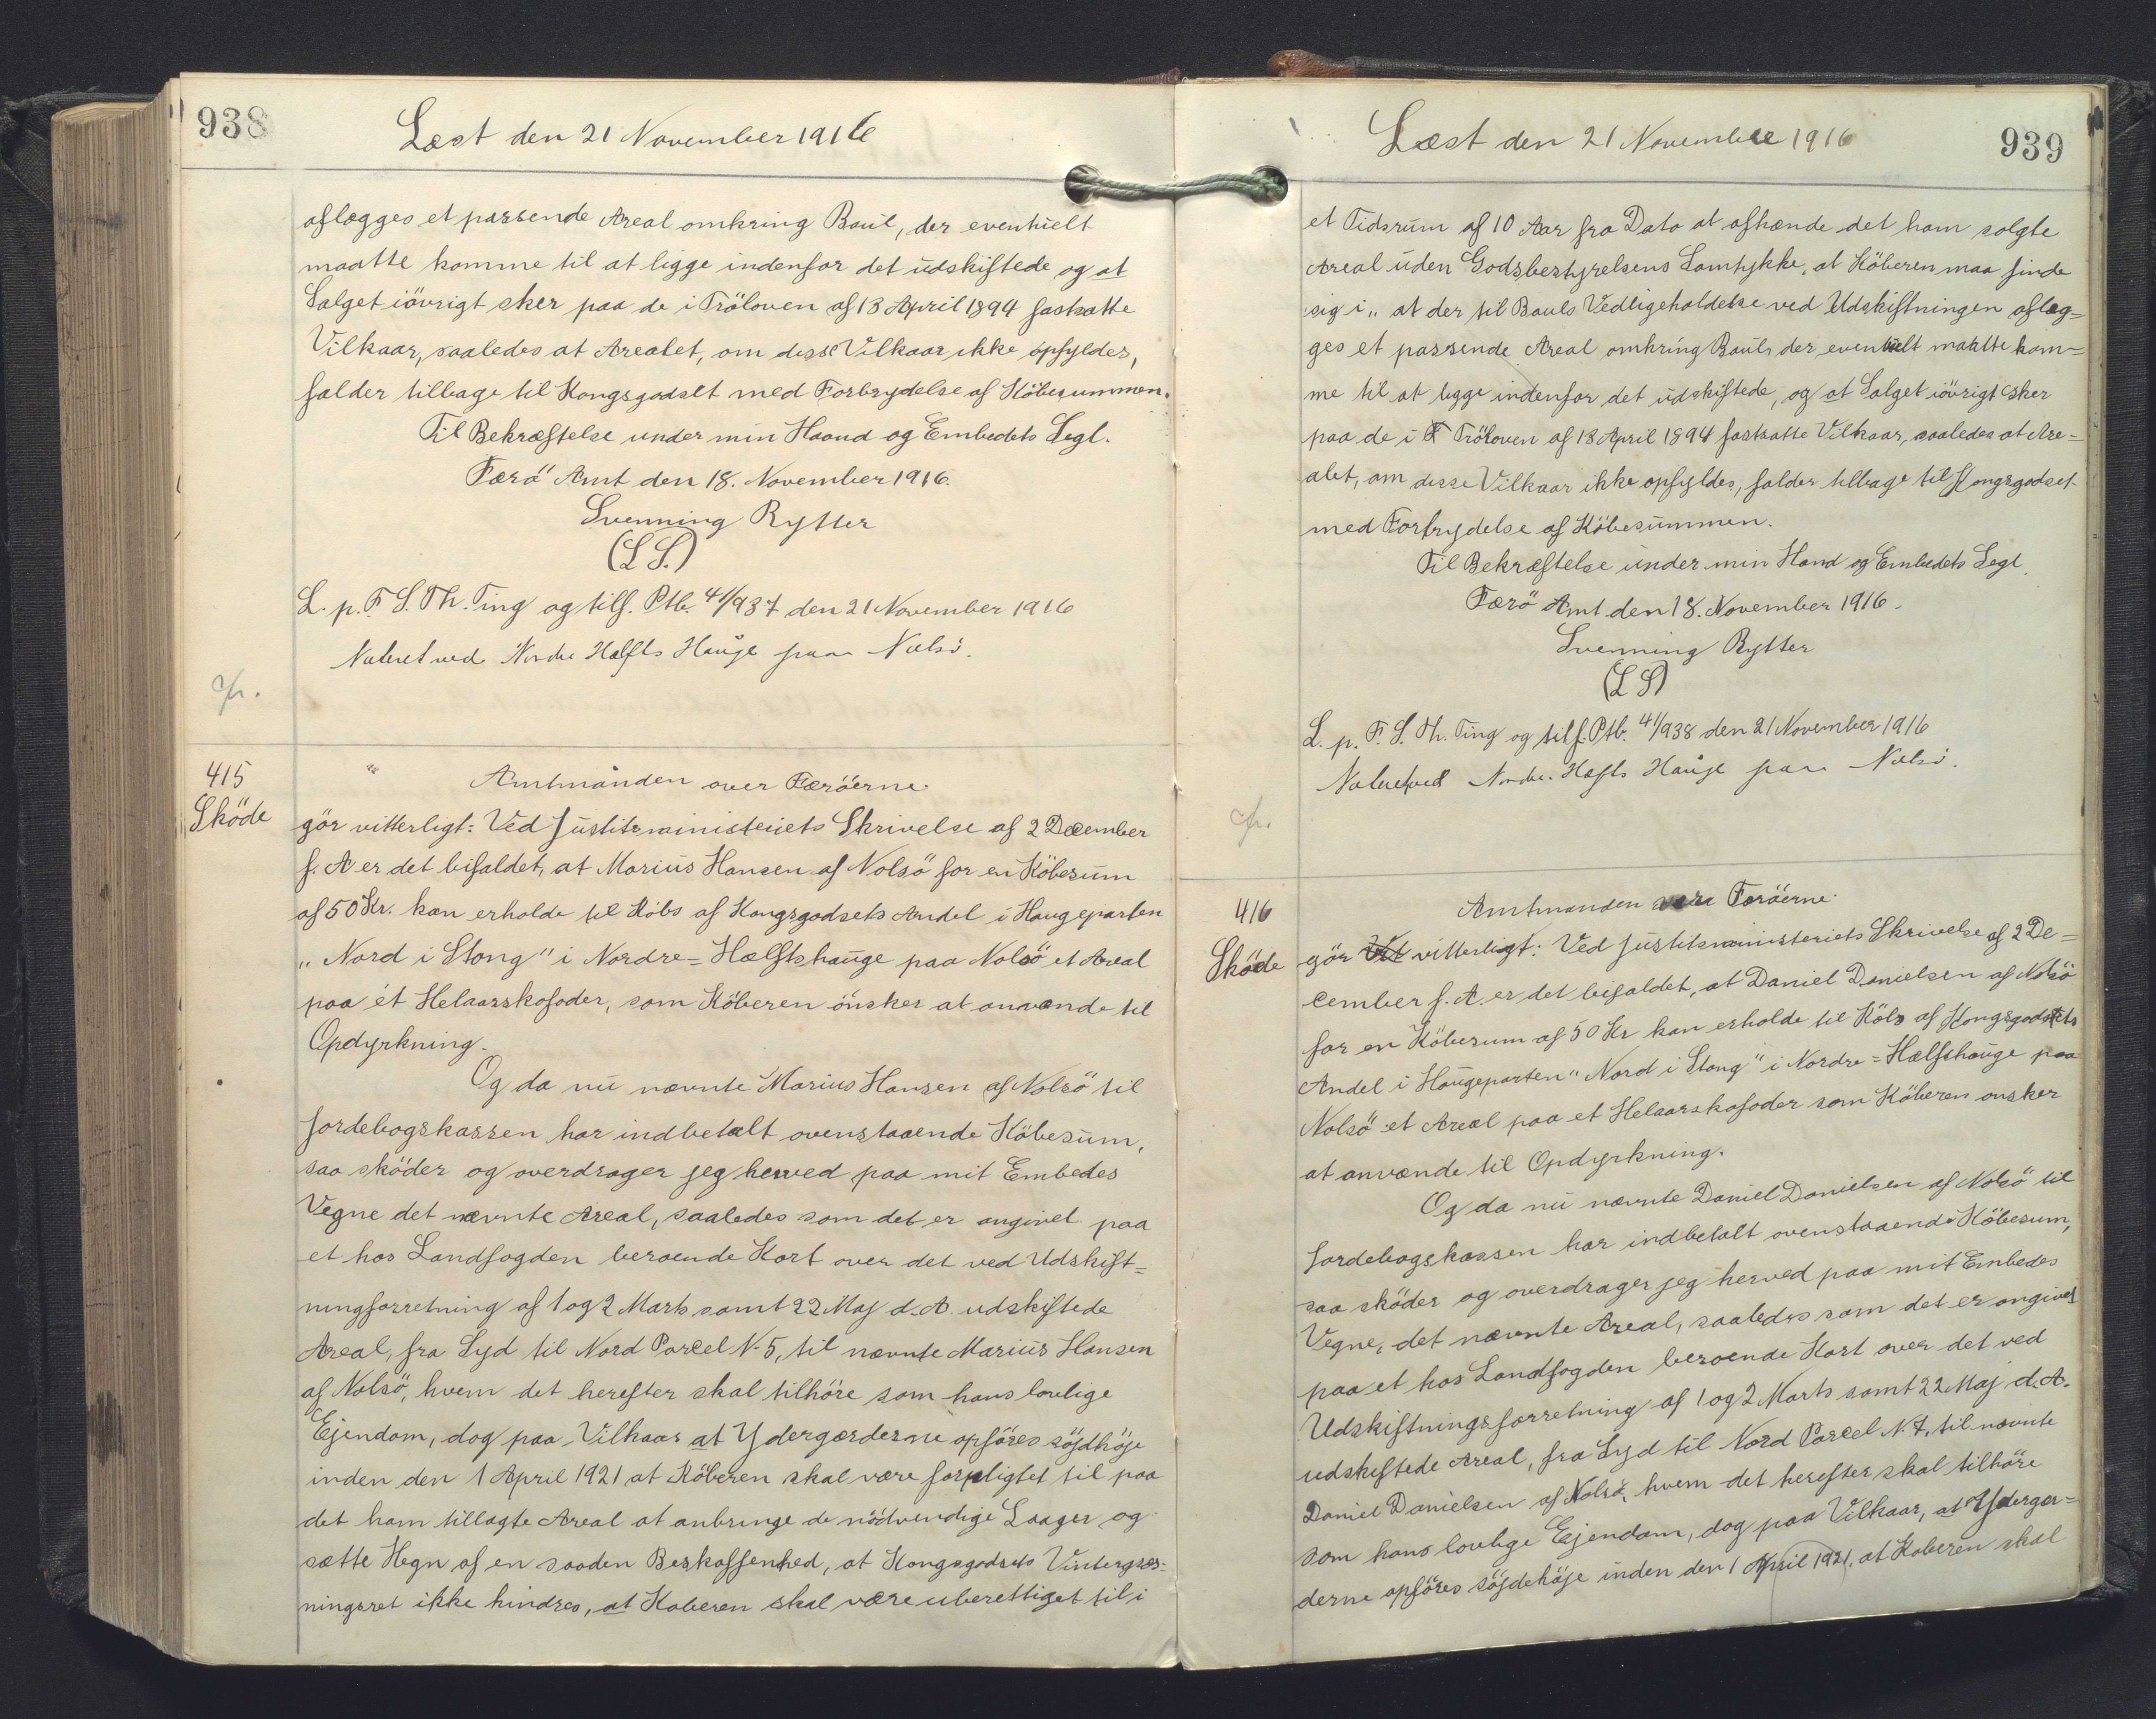 938
Læst den 21 November 1916
aflægges et passende Areal omkring Baul, der eventuelt
maatte komme til at ligge indenfor det udskiftede og at
Salget iövrigt sker paa de i Tröloven af 13 April 1894 fastsatte
Vilkaar, saaledes at Arealet, om disse Vilkaar ikke opfyldes,
falder tilbage til Kongsgodset med Forbrydelse af Köbesummen.
Til Bekræftelse under min Haand og Embedets Segl.
Færö Amt den 18. November 1916.
Svenning Rytter
(L S.)
L. p. F. S. Th. Ting og tilf. Ptb. 41/937 den 21 November 1916
Noteret ved Nordre Hælfts Hauge paa Nolsö.
cfr.
415
Sköde
Amtmanden over Færöerne
gör vitterligt: Ved Justitsministeriets Skrivelse af 2 December
f. A er det bifaldet, at Marius Hansen af Nolsö for en Köbesum
af 50 Kr. kan erholde til Köbs af Kongsgodsets Andel i Haugeparten
„Nord i Stong" i Nordre=Hælftshauge paa Nolsö et Areal
paa ét Helaarskofoder, som Köberen önsker at anvende til
Opdyrkning.
Og da nu nævnte Marius Hansen af Nolsö til
Jordebogskassen har indbetalt ovenstaaende Köbesum,
saa sköder og overdrager jeg herved paa mit Embedes
Vegne det nævnte Areal, saaledes som det er angivet paa
et hos Landfogden beroende Kort over det ved Udskift=
ningsforretning af 1 og 2 Marts samt 22 Maj d. A. udskiftede
Areal, fra Syd til Nord Parcel N. 5, til nævnte Marius Hansen
af Nolsö, hvem det herefter skal tilhöre som hans lovlige
Ejendom, dog paa Vilkaar at Ydergærderne opföres söjdhöje
inden den 1 April 1921 at Köberen skal være forpligtet til paa
det ham tillagte Areal at anbringe de nödvendige Laager og
sætte Hegn af en saaden Beskaffenhed, at Kongsgodsets Vintergræs=
ningsret ikke hindres, at Koberen skal være uberettiget til i
Læst den 21 November 1916
939
et Tidsrum af 10 Aar fra Dato at afhænde det ham solgte
Areal uden Godsbestyrelsens Samtykke, at Köberen maa finde
sig i „ at der til Bauls Vedligeholdelse ved Udskiftningen aflæg=
ges et passende Areal omkring Baul, der eventuelt maatte kom=
me til at ligge indenfor det udskiftede, og at Salget iövrigt sker
paa de i T Tröloven af 18 April 1894 fastsatte Vilkaar, saaledes at Are=
alet, om disse Vilkaar ikke opfyldes, falder tilbage til Kongsgodset
med Forbrydelse af Köbesummen.
Til Bekræftelse under min Hand og Embedets Segl.
Færö Amt den 18. November 1916.
Svenning Rytter
(L S)
L. p. F. S. Th. Ting og tilf. Ptb. 41/938 den 21 November 1916
Noteret ved Nordre Hæfts Hauge paa Nolsö.
cfr.
416
Sköde
Amtmanden over Færöerne
gör Vit vitterligt: Ved Justitsministeriets Skrivelse af 2 De=
cember f. A. er det bifaldet, at Daniel Danielsen af Nolsö
for en Köbesum af 50 Kr kan erholde til Köbs af Kongsgodsets
Andel i Haugeparten "Nord i Stong" i Nordre=Hælfshauge paa
Nolsö et Areal paa et Helaarskofoder som Köberen onsker
at anvænde til Opdyrkning.
Og da nu nævnte Daniel Danielsen af Nolsö til
Jordebogskassen har indbetalt ovenstaaende Köbesum,
saa sköder og overdrager jeg herved paa mit Embedes
Vegne, det nævnte Areal, saaledes som det er angivet
paa et hos Landfogden beroende Kort over det ved
Udskiftningsforretning af 1 og 2 Marts samt 22 Maj d. A.
udskiftede Areal, fra Syd til Nord Parcel N. 7, til nævnte
Daniel Danielsen af Nolsö, hvem det herefter skal tilhöre
som hans lovlige Ejendom, dog paa Vilkaar, at Ydergær=
derne opföres söjdehöje inden den 1 April 1921, at Koberen skal